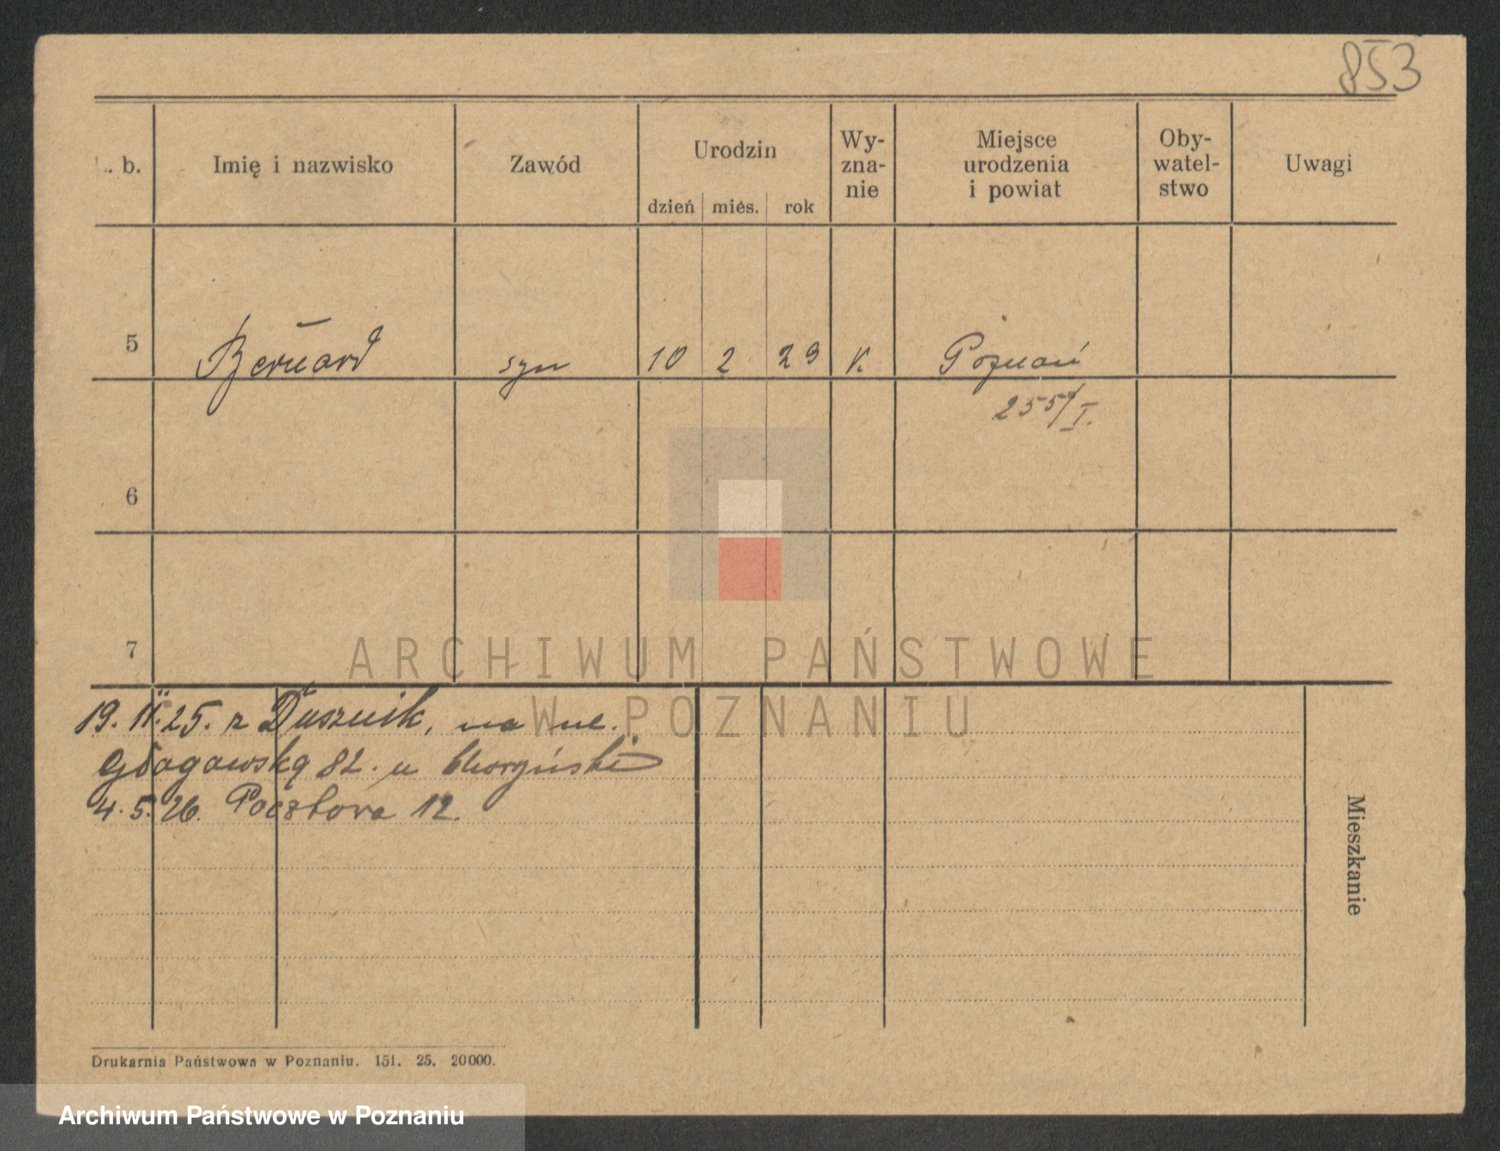 853
L. b. Imię i nazwisko Zawód Urodzin Wy-zna-nie Miejsce urodzenia i powiat Oby-watel-stwo Uwagi
dzień mieś. rok
5 Bernard syn 10 2 29 K Poznań
255/I.
6
7
ARCHIWUM PAŃSTWOWE
W POZNANIU
19. II. 25. z Dusznik, na ul.
Głogowską 82. u
4. 5. 26. Pocztowa 12.
Mieszkanie
Drukarnia Państwowa w Poznaniu. 151. 25. 20000.
Archiwum Państwowe w Poznaniu